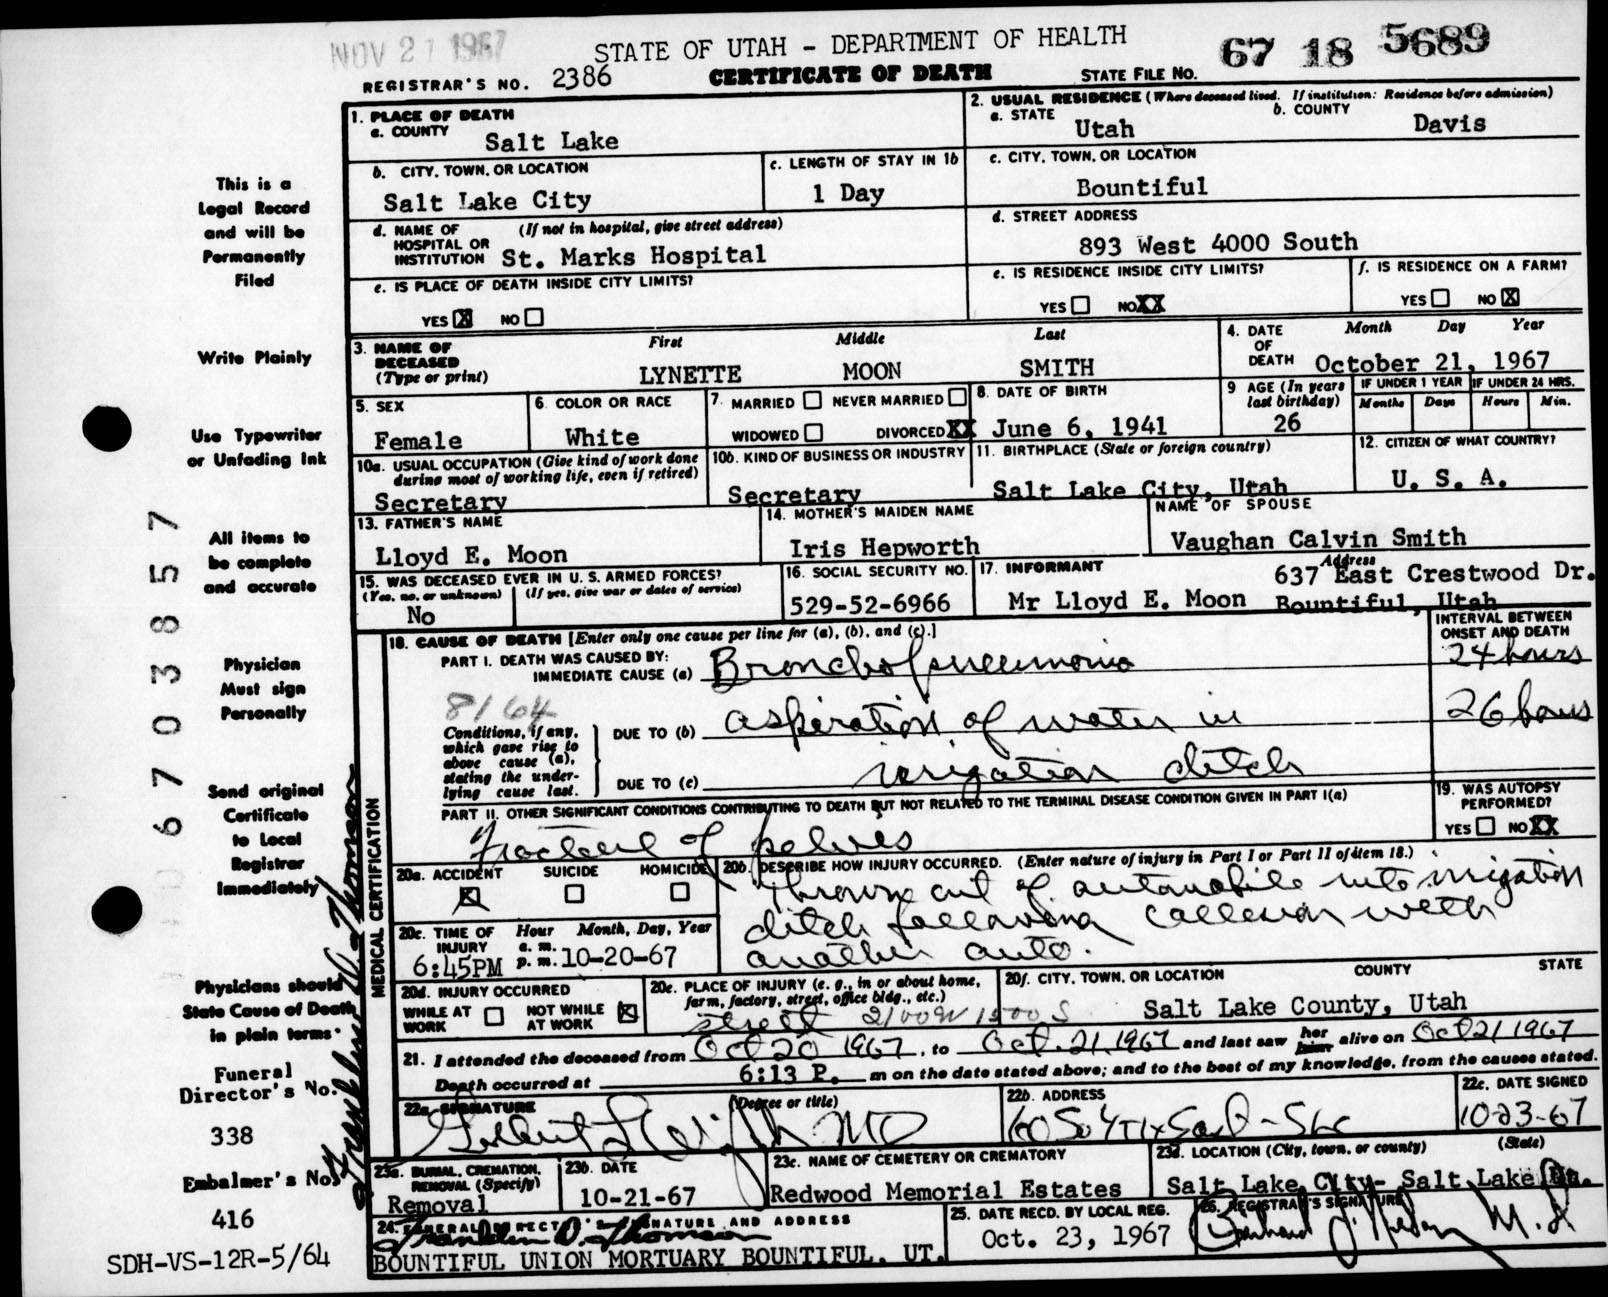 NOV 27 1967
STATE OF UTAH - DEPARTMENT OF HEALTH
67 18 5689
REGISTRAR'S NO. 2386
CERTIFICATE OF DEATH
STATE FILE NO.
1. PLACE OF DEATH
a. COUNTY Salt Lake
2. USUAL RESIDENCE (Where deceased lived. If institution: Residence before admission)
a. STATE Utah b. COUNTY Davis
b. CITY, TOWN, OR LOCATION Salt Lake City
c. LENGTH OF STAY IN 1b 1 Day
c. CITY, TOWN, OR LOCATION Bountiful
d. NAME OF HOSPITAL OR INSTITUTION (If not in hospital, give street address) St. Marks Hospital
d. STREET ADDRESS 893 West 4000 South
e. IS PLACE OF DEATH INSIDE CITY LIMITS? YES X NO
e. IS RESIDENCE INSIDE CITY LIMITS? YES NO XX
f. IS RESIDENCE ON A FARM? YES NO X
3. NAME OF DECEASED (Type or print) First Middle Last
LYNETTE MOON SMITH
4. DATE OF DEATH Month Day Year October 21, 1967
5. SEX Female
6. COLOR OR RACE White
7. MARRIED NEVER MARRIED WIDOWED DIVORCED XX
8. DATE OF BIRTH June 6, 1941
9 AGE (In years last birthday) 26
IF UNDER 1 YEAR Months Days
IF UNDER 24 HRS. Hours Min.
10a. USUAL OCCUPATION (Give kind of work done during most of working life, even if retired) Secretary
10b. KIND OF BUSINESS OR INDUSTRY Secretary
11. BIRTHPLACE (State or foreign country) Salt Lake City, Utah
12. CITIZEN OF WHAT COUNTRY? U. S. A.
13. FATHER'S NAME Lloyd E. Moon
14. MOTHER'S MAIDEN NAME Iris Hepworth
NAME OF SPOUSE Vaughan Calvin Smith
15. WAS DECEASED EVER IN U. S. ARMED FORCES? (Yes, no, or unknown) (If yes, give war or dates of service) No
16. SOCIAL SECURITY NO. 529-52-6966
17. INFORMANT Mr Lloyd E. Moon
Address 637 East Crestwood Dr. Bountiful, Utah
18. CAUSE OF DEATH [Enter only one cause per line for (a), (b), and (c).]
INTERVAL BETWEEN ONSET AND DEATH
PART I. DEATH WAS CAUSED BY:
IMMEDIATE CAUSE (a) Bronchopneumonia 24 hours
8164
Conditions, if any, which gave rise to above cause (a), stating the underlying cause last.
DUE TO (b) aspiration of water in 26 hours
DUE TO (c) irrigation ditch
PART II. OTHER SIGNIFICANT CONDITIONS CONTRIBUTING TO DEATH BUT NOT RELATED TO THE TERMINAL DISEASE CONDITION GIVEN IN PART I(a)
Fracture of pelvis
19. WAS AUTOPSY PERFORMED? YES NO XX
20a. ACCIDENT X SUICIDE HOMICIDE
20b. DESCRIBE HOW INJURY OCCURRED. (Enter nature of injury in Part I or Part II of item 18.)
Thrown out of automobile into irrigation
ditch following collision with
another auto.
20c. TIME OF INJURY Hour Month, Day, Year
a. m. p. m. 6:45PM 10-20-67
20d. INJURY OCCURRED WHILE AT WORK NOT WHILE AT WORK X
20e. PLACE OF INJURY (e. g., in or about home, farm, factory, street, office bldg., etc.)
street 2100 W 1500 S
20f. CITY, TOWN, OR LOCATION COUNTY STATE
Salt Lake County, Utah
21. I attended the deceased from Oct 20 1967, to Oct. 21, 1967 and last saw her him alive on Oct 21 1967
Death occurred at 6:13 P. m on the date stated above; and to the best of my knowledge, from the causes stated.
22a. SIGNATURE (Degree or title) MD
22b. ADDRESS
22c. DATE SIGNED 10-23-67
23a. BURIAL, CREMATION, REMOVAL (Specify) Removal
23b. DATE 10-21-67
23c. NAME OF CEMETERY OR CREMATORY Redwood Memorial Estates
23d. LOCATION (City, town, or county) (State) Salt Lake City- Salt Lake
24. FUNERAL DIRECTOR'S SIGNATURE AND ADDRESS
Franklin D. Thomson
BOUNTIFUL UNION MORTUARY BOUNTIFUL, UT.
25. DATE RECD. BY LOCAL REG. Oct. 23, 1967
26. REGISTRAR'S SIGNATURE M.D.
This is a
Legal Record
and will be
Permanently
Filed
Write Plainly
Use Typewriter
or Unfading Ink
All items to
be complete
and accurate
Physician
Must sign
Personally
Send original
Certificate
to Local
Registrar
Immediately
Physicians should
State Cause of Death
in plain terms.
Funeral
Director's No.
338
Embalmer's No.
416
SDH-VS-12R-5/64
67038857
MEDICAL CERTIFICATION
Franklin D. Thomson